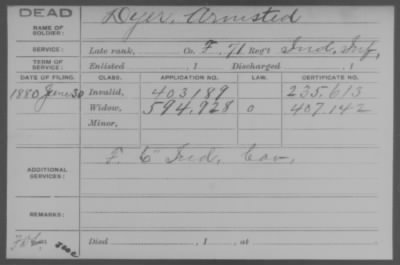 DEAD
NAME OF SOLDIER: Dyer, Armsted
SERVICE: Late rank, Co. F. 71 Reg't Ind. Inf,
TERM OF SERVICE: Enlisted , 1 Discharged , 1
DATE OF FILING. CLASS. APPLICATION NO. LAW. CERTIFICATE NO.
1880 June 30 Invalid, 403189 235.613
Widow, 594,928 0 407.142
Minor,
ADDITIONAL SERVICES: F. 6" Ind. Cav,
REMARKS:
Died , 1 , at